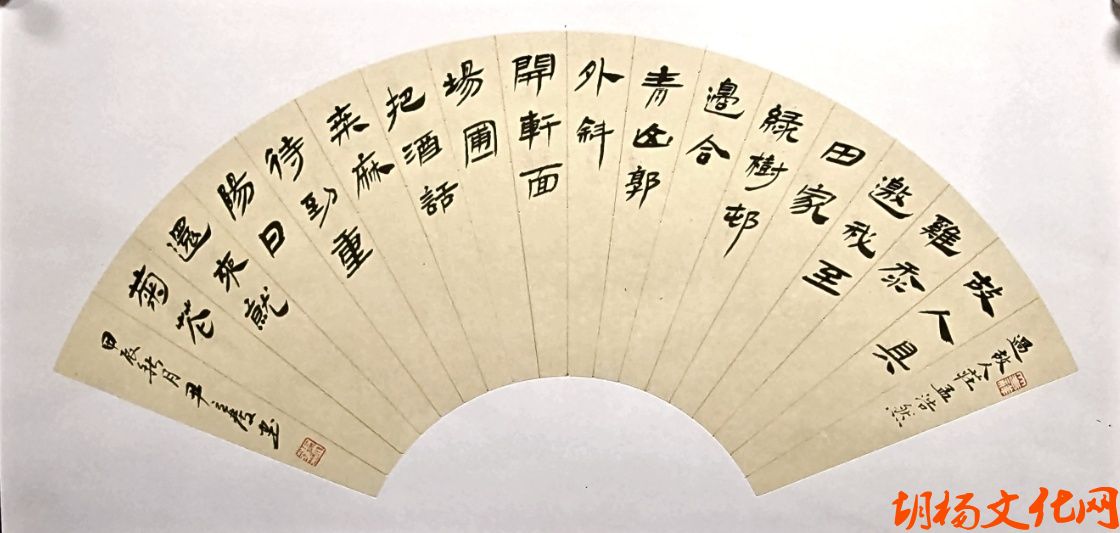 過故人莊 孟浩然
故人具
雞黍
邀我至
田家
綠樹邨
邊合
青山郭
外斜
開軒面
場圃
把酒話
桑麻
待到重
陽日
還來就
菊花
甲辰 月 書
胡杨文化网